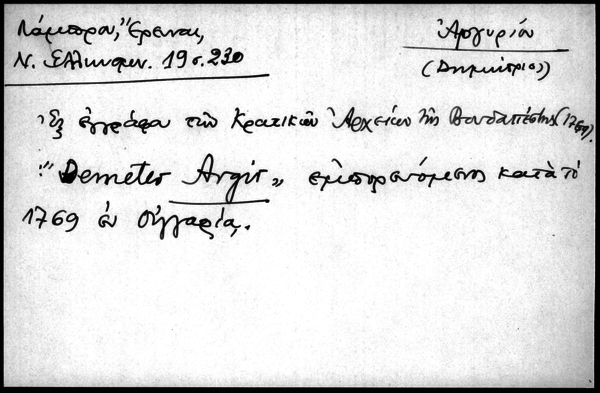 Λάμπρου, "Έρευναι,
Ν. Ελληνομν. 19 σ. 230
Ἀργυρίου
(Δημήτριος)
Ἐξ ἐγγράφου τῶν Κρατικῶν Ἀρχείων τῆς Βουδαπέστης (1769).
"Demeter Argir„ ἐμπορευόμενος κατὰ τὸ
1769 ἐν Οὑγγαρίᾳ.